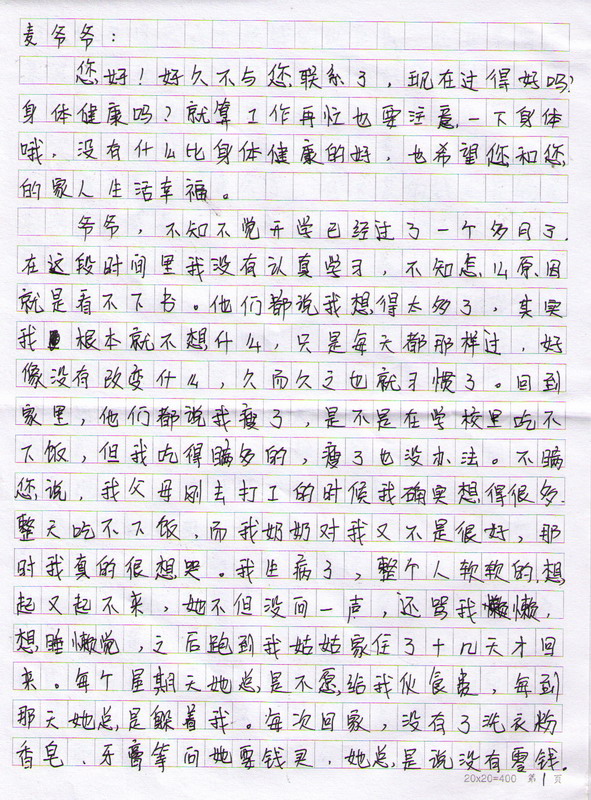 麦爷爷：
您好！好久不与您联系了，现在过得好吗？
身体健康吗？就算工作再忙也要注意一下身体
哦，没有什么比身体健康的好，也希望您和您
的家人生活幸福。
爷爷，不知不觉开学已经过了一个多月了，
在这段时间里我没有认真学习，不知怎么原因
就是看不下书。他们都说我想得太多了，其实
我根本就不想什么，只是每天都那样过，好
像没有改变什么，久而久之也就习惯了。回到
家里，他们都说我瘦了，是不是在学校里吃不
下饭，但我吃得瞒多的，瘦了也没办法。不瞒
您说，我父母刚去打工的时候我确实想得很多，
整天吃不下饭，而我奶奶对我又不是很好，那
时我真的很想哭。我生病了，整个人软软的，想
起又起不来，她不但没问一声，还骂我懒，
想睡懒觉，之后跑到我姑姑家住了十几天才回
来。每个星期天她总是不愿给我伙食费，每到
那天她总是躲着我。每次回家，没有了洗衣粉
香皂、牙膏等问她要钱买，她总是说没有零钱。
20x20=400 第1页